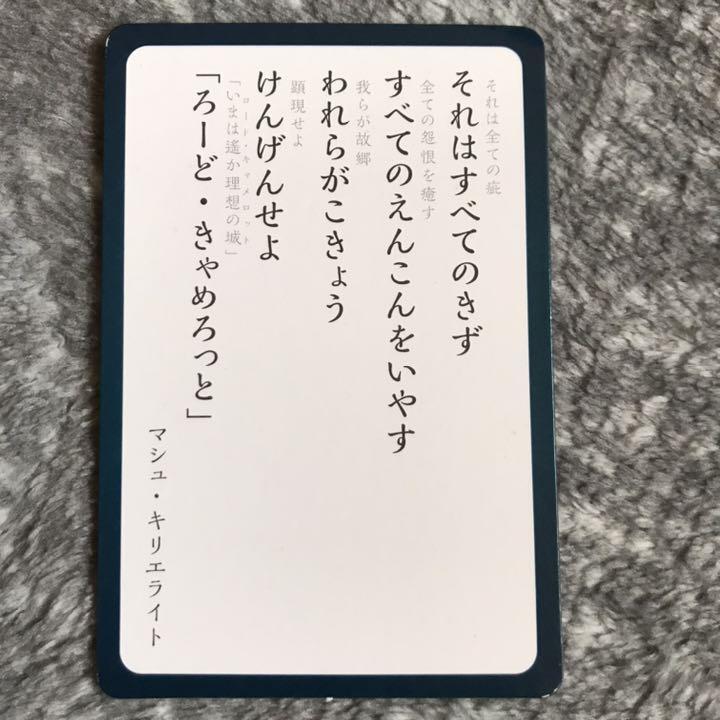 それは全ての疵
それはすべてのきず
全ての怨恨を癒す
すべてのえんこんをいやす
我らが故郷
われらがこきょう
顕現せよ
けんげんせよ
ロード・キャメロット
「いまは遥か理想の城」
「ろーど・きゃめろっと」
マシュ・キリエライト